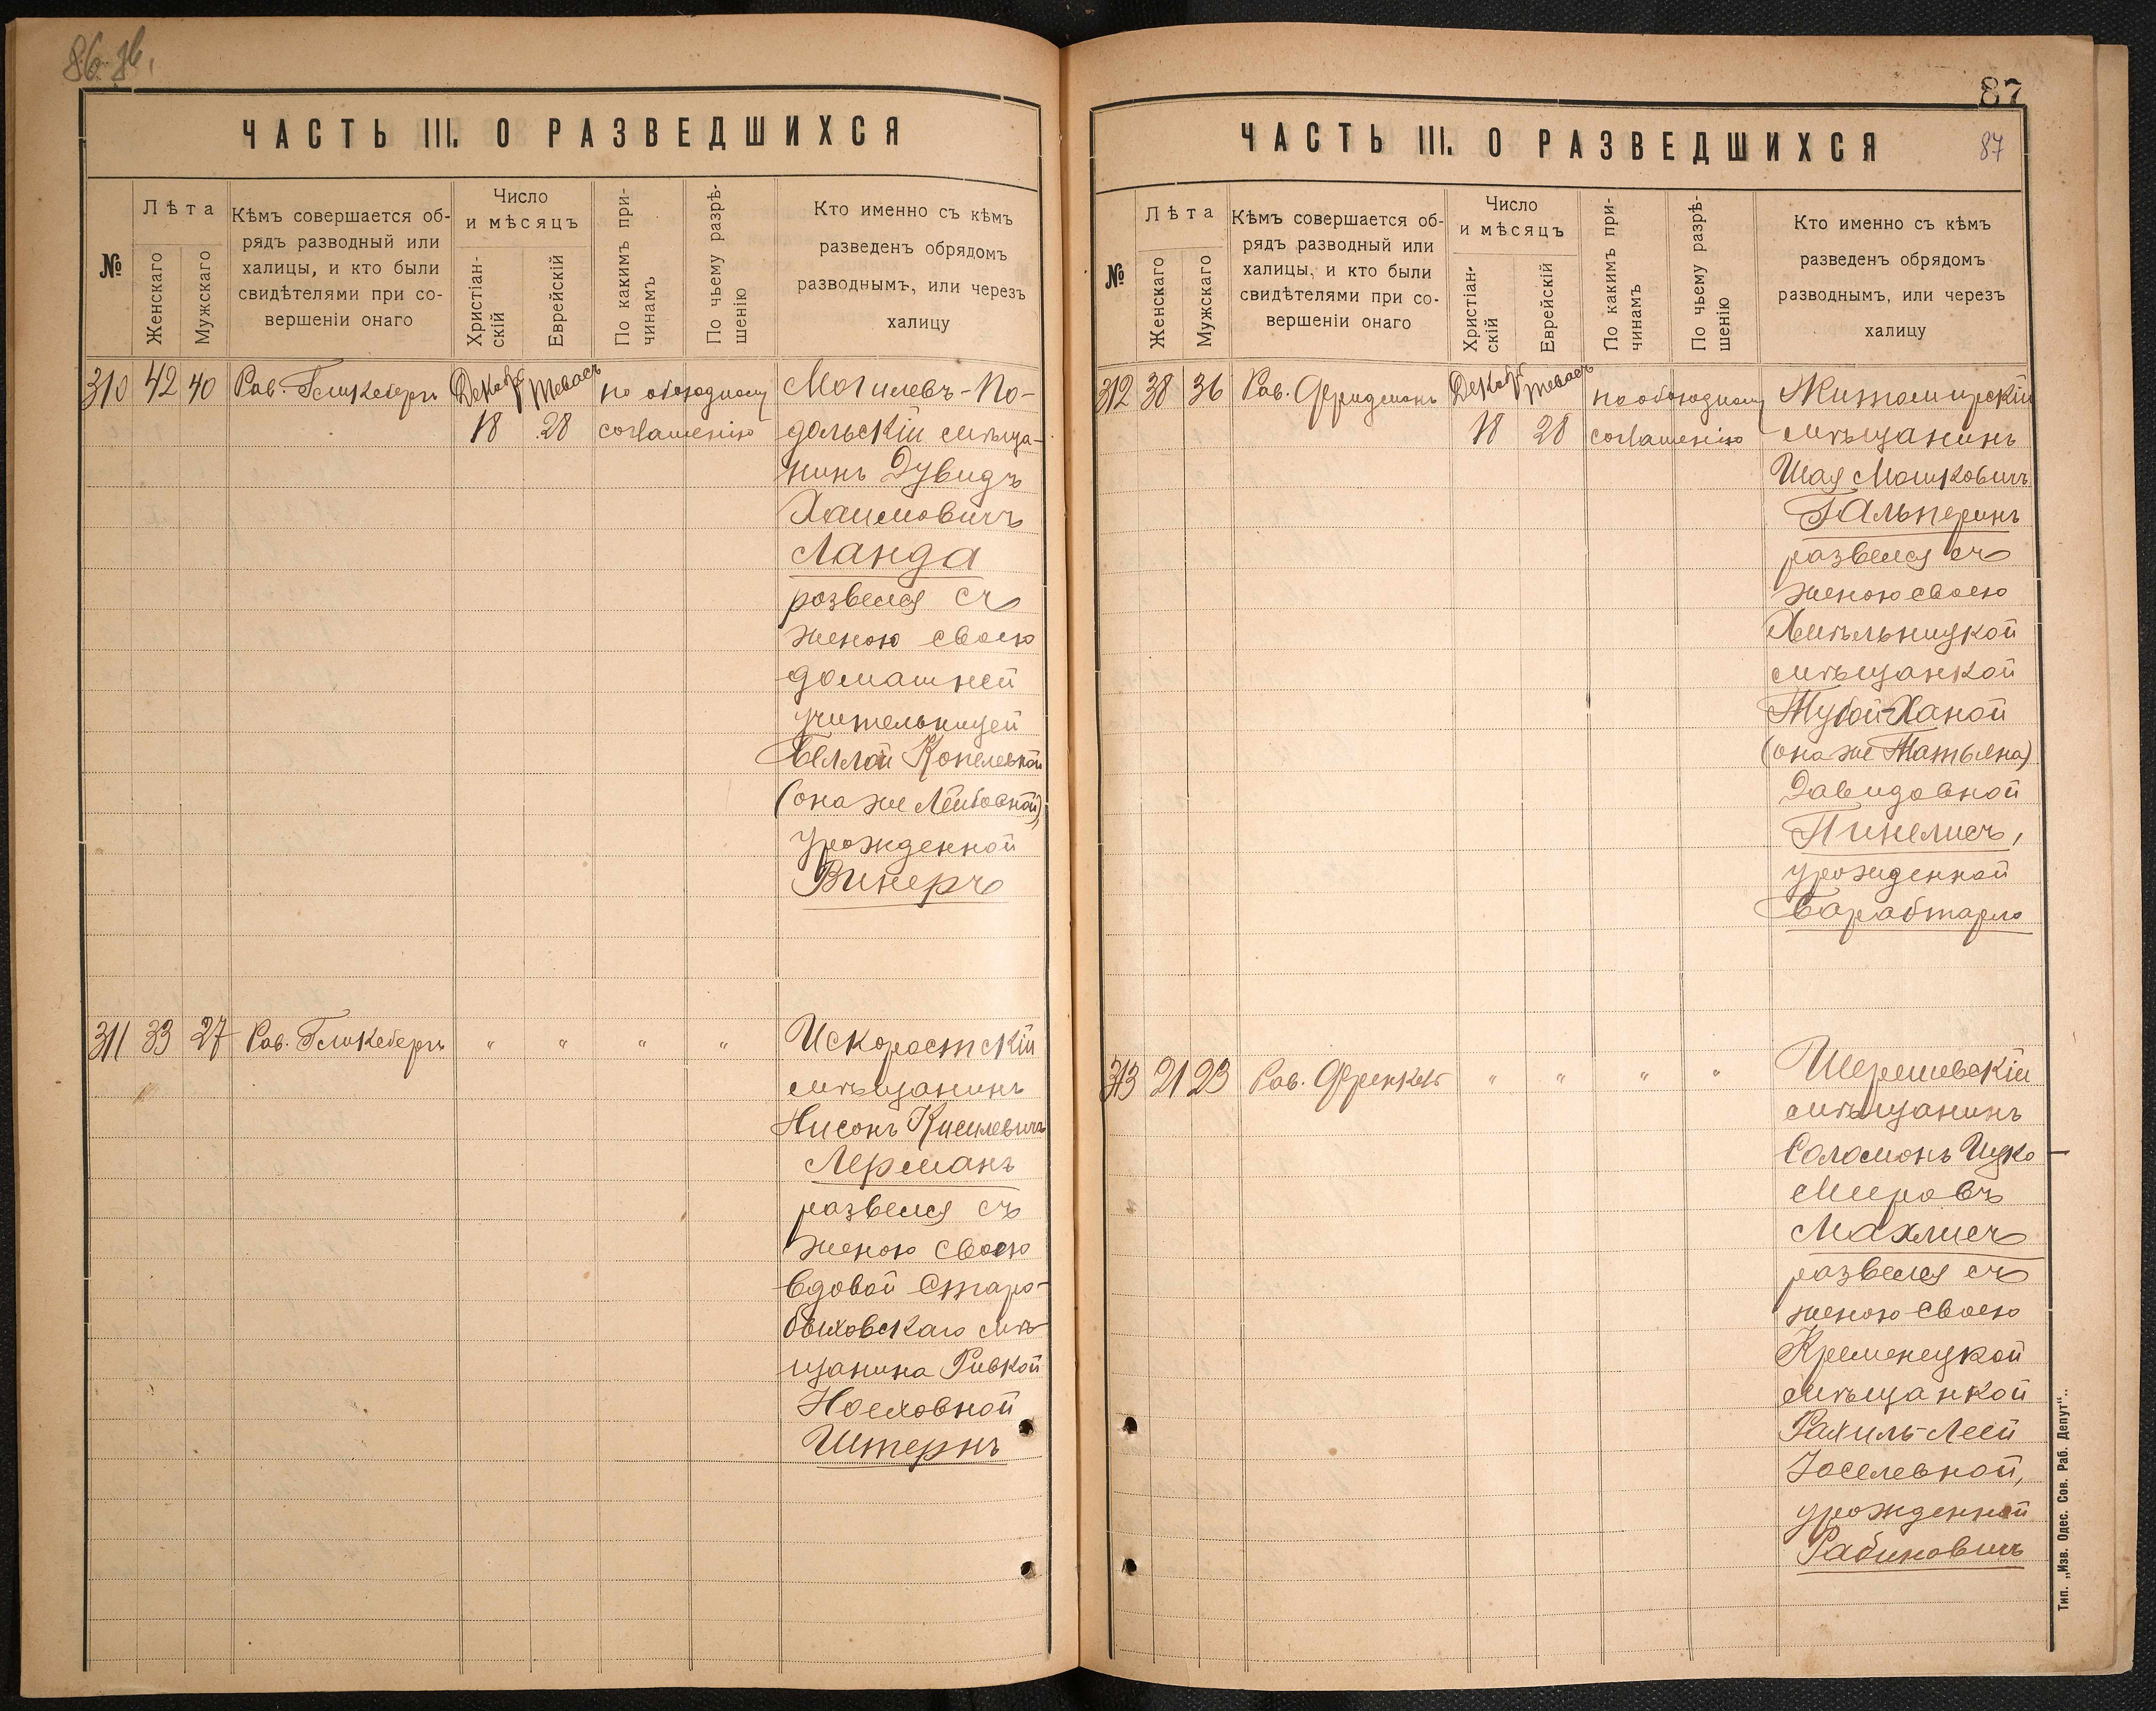 86 зв.
ЧАСТЬ III. О РАЗВЕДШИХСЯ
№
Лѣта
Женскаго
Мужскаго
Кѣмъ совершается об-
рядъ разводный или
халицы, и кто были
свидѣтелями при со-
вершеніи онаго
Число
и мѣсяцъ
Христіан-
скій
Еврейскій
По какимъ при-
чинамъ
По чьему разрѣ-
шенію
Кто именно съ кѣмъ
разведенъ обрядомъ
разводнымъ, или черезъ
халицу
310 42 40 Рав. Гликсбергъ Декабр Теваст по обоюдному Могилевъ-По-
18 28 соглашенію дольскій мѣща-
нинъ Дувидъ
Хаимовичъ
Ланда
розвелся съ
женою своею
домашней
учительницей
Беллой Копелевной
(она же Лейбовной)
урожденной
Винеръ
311 33 27 Рав. Гликсбергъ " " " " Искоростскій
мѣщанинъ
Нисонъ Киселевичъ
Лерманъ
развелся съ
женою своею
вдовой Старо-
быховскаго мѣ-
щанина Ривкой
Ноеховной
Штернъ
87
ЧАСТЬ III. О РАЗВЕДШИХСЯ
87
№
Лѣта
Женскаго
Мужскаго
Кѣмъ совершается об-
рядъ разводный или
халицы, и кто были
свидѣтелями при со-
вершеніи онаго
Число
и мѣсяцъ
Христіан-
скій
Еврейскій
По какимъ при-
чинамъ
По чьему разрѣ-
шенію
Кто именно съ кѣмъ
разведенъ обрядомъ
разводнымъ, или черезъ
халицу
312 38 36 Рав. Фридманъ Декабр Теваст по обоюдному Житомирскій
18 28 соглашенію мѣщанинъ
Шая Мошковичъ
Гальперинъ
развелся съ
женою своею
Хмѣльницкой
мѣщанкой
Тубой-Ханой
(она же Татьяна)
Давидовной
Пинелисъ,
урожденной
Барабтарло
313 21 23 Рав. Френкель " " " " Шерешевскій
мѣщанинъ
Соломонъ Ицко-
Мееровъ
Махлисъ
развелся съ
женою своею
Кременецкой
мѣщанкой
Рахиль-Леей
Іоселевной,
урожденной
Рабиновичъ
Тип. „Изв. Одес. Сов. Раб. Депут“.